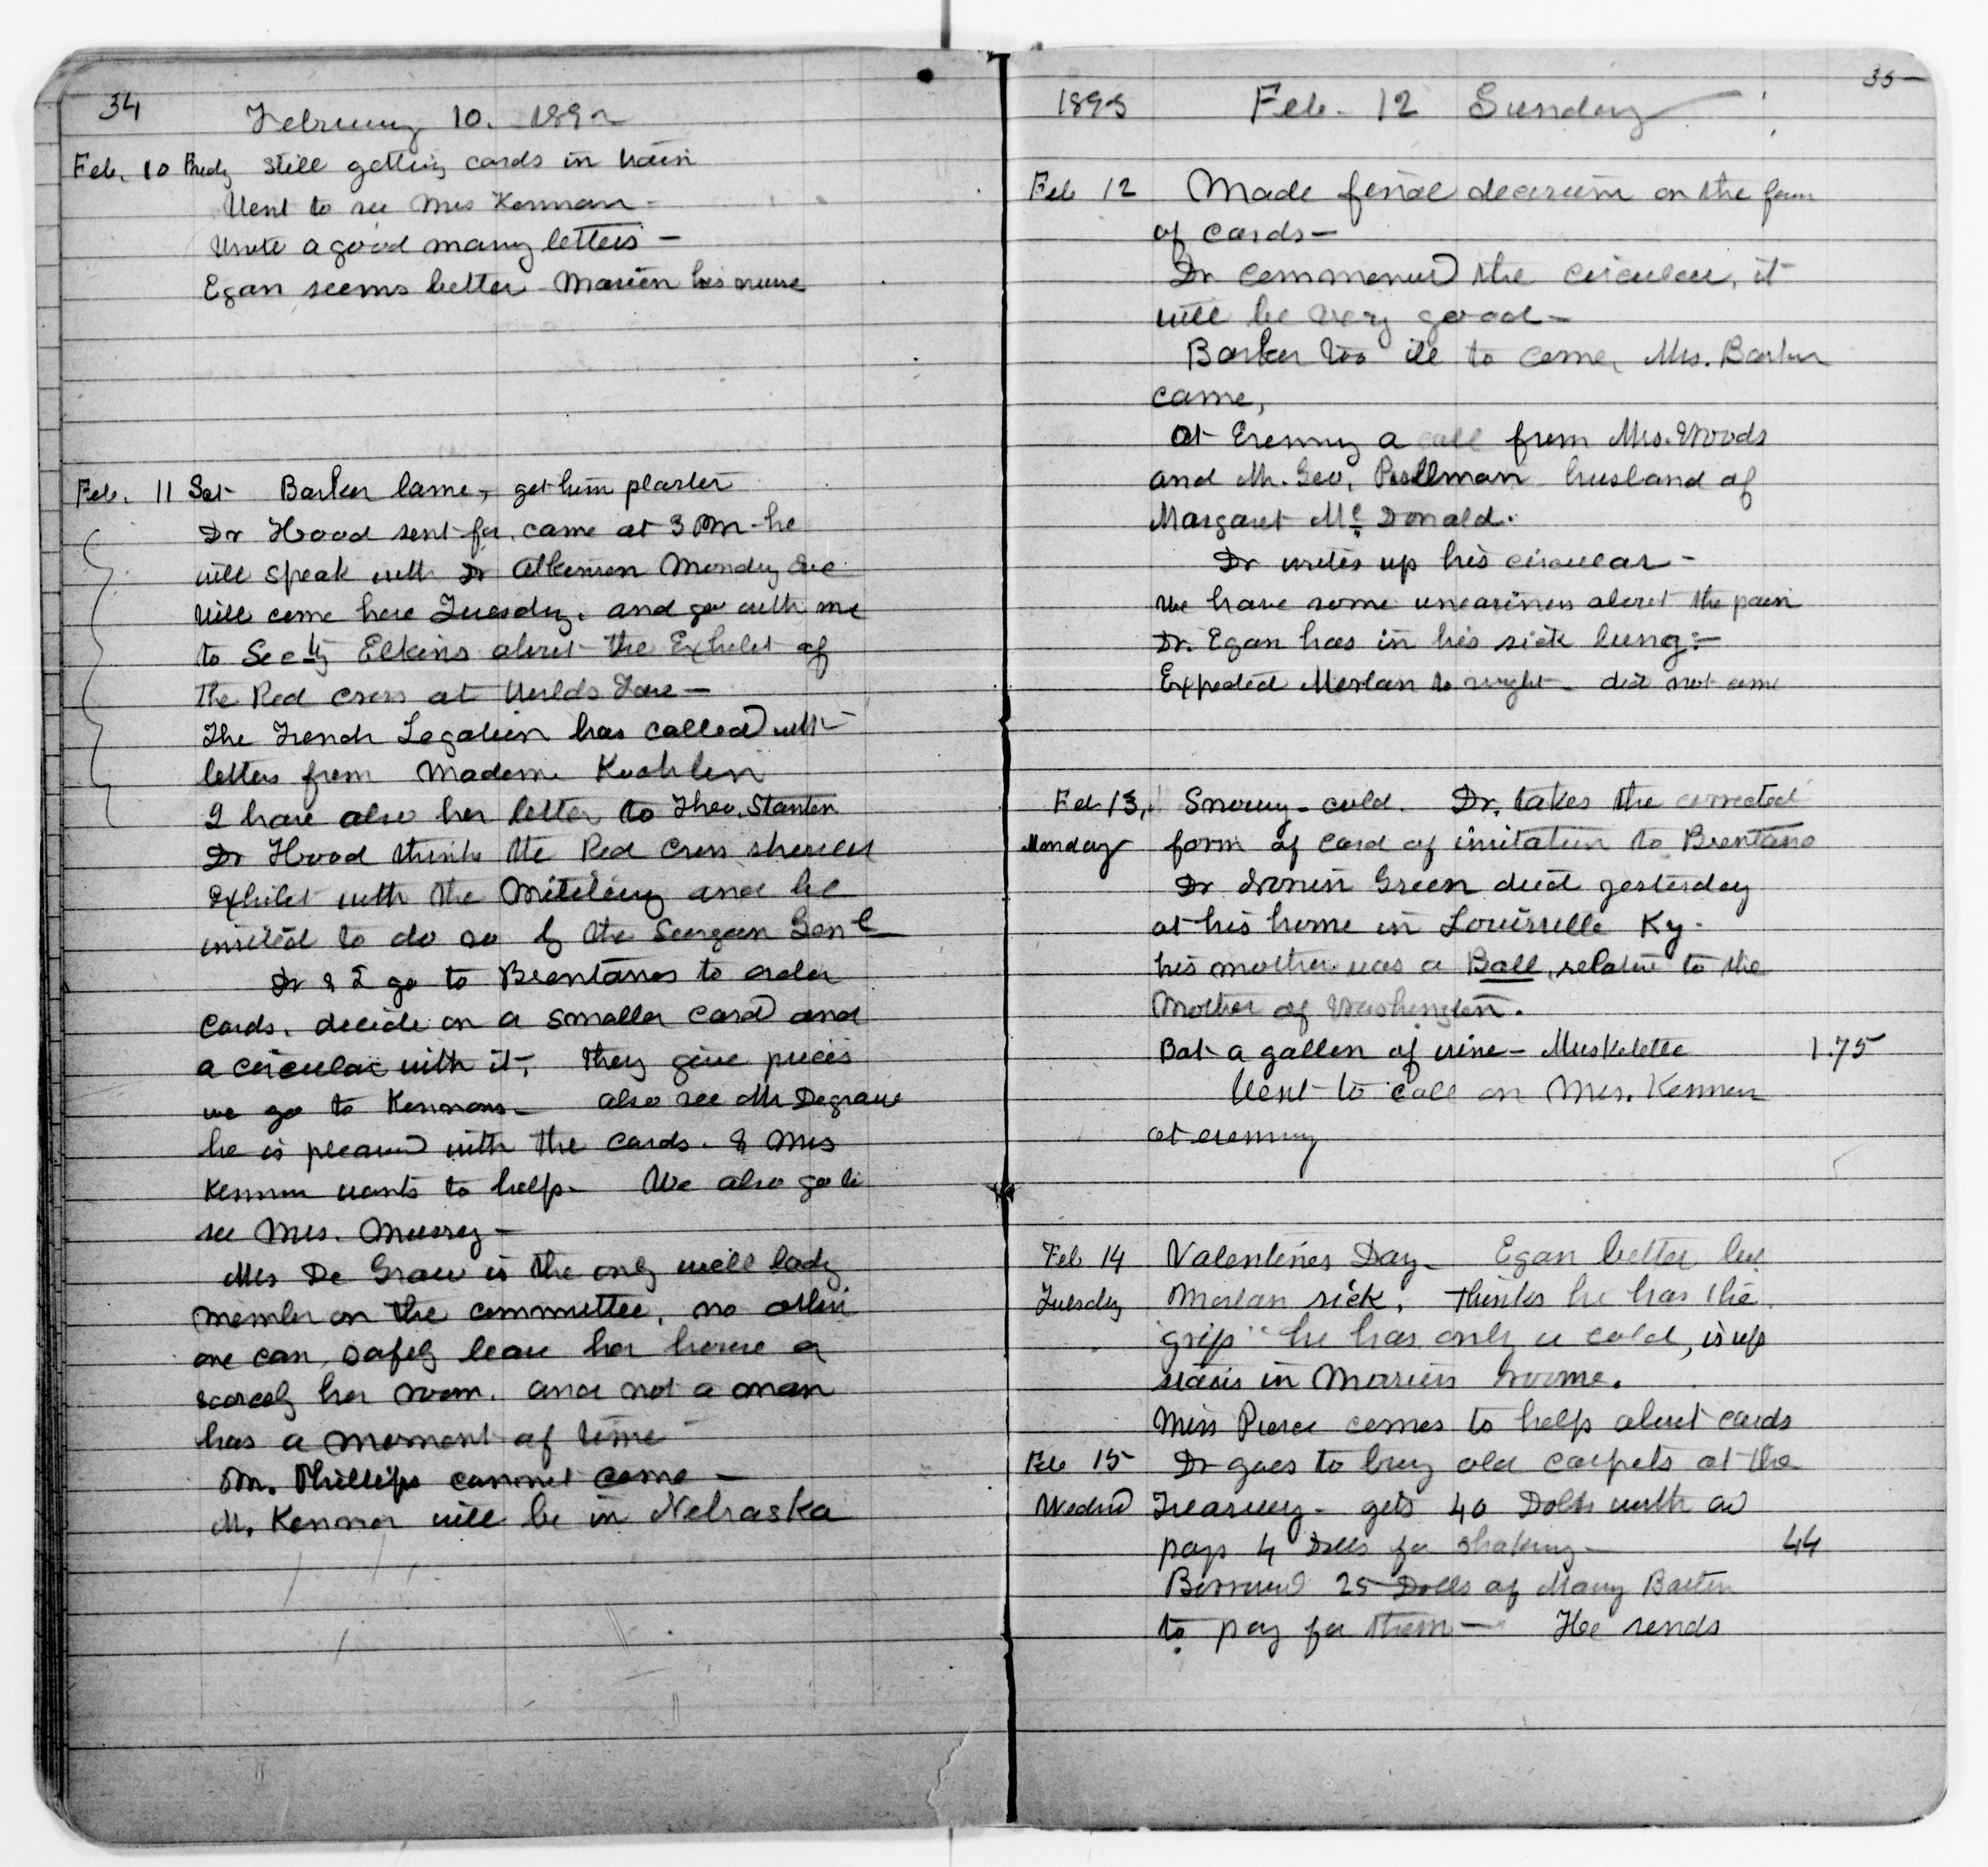 34
February 10. 189
Feb. 10 Fridy Still getting cards in train
Went to see Mrs Kennan -
Wrote a good many letters -
Egan seems better - Marion his nurse
Feb. 11 Sat Barker lame, get him plaster
Dr Hood sent for. came at 3 PM - he
will speak with Dr Atkinson Monday Eve
Will come here Tuesday. and go with me
to Secty Elkins about the Exhibit of
the Red Cross at Worlds Fare -
The French Legation has called with
letters from Madame Kochlin
I have also her letter to Theo. Stanton
Dr Hood thinks the Red Cross should
exhibit with the Military and be
invited to do so by the Surgeon Genl
Dr & I go to Brentanos to order
Cards. decide on a smaller card and
a circular with it, they give prices
we go to Kennans - also see Mr Degraw
he is pleased with the cards. & Mrs
Kennan wants to help - We also go to
see Mrs. Mussey -
Mrs De Graw is the only well lady
member on the committee. no other
one can safely leave her house or
scarcely her room. and not a man
has a moment of time -
Mr. Phillips cannot come -
Mr. Kennan will be in Nebraska
35
1893 Feb. 12 Sunday
Feb 12 Made final decision on the form
of cards -
Dr commenced the circular, it
will be very good -
Barker too ill to come, Mrs. Barker
came,
at Evening a call from Mrs. Woods
and Mr. Geo. Pullman husband of
Margaret Mc Donald.
Dr writes up his circular -
We have some uneasiness about the pain
Dr. Egan has in his sick lung -
Expected Morlan to night - did not come
Feb 13, Snowy - cold. Dr. takes the corrected
Monday form of card of invitation to Brentano
Dr Green died yesterday
at his home in Louisville Ky -
his mother was a Ball, relative to the
Mother of Washington.
Bot a gallon of wine - Muskelette 1.75
Went to call on Mrs. Kennan
at evening
Feb 14 Valentines Day - Egan better but
Tuesday Morlan sick. thinks he has the
"grip" he has only a cold, is up
stairs in Marions roome.
Miss Pierce comes to help about cards
Feb 15 Dr goes to buy old carpets at the
Wednd Treasury - gets 40 Dolls worth and
pays 4 Dolls for shaking - 44
Borrowed 25 Dolls of Mary Barton
to pay for them - He sends